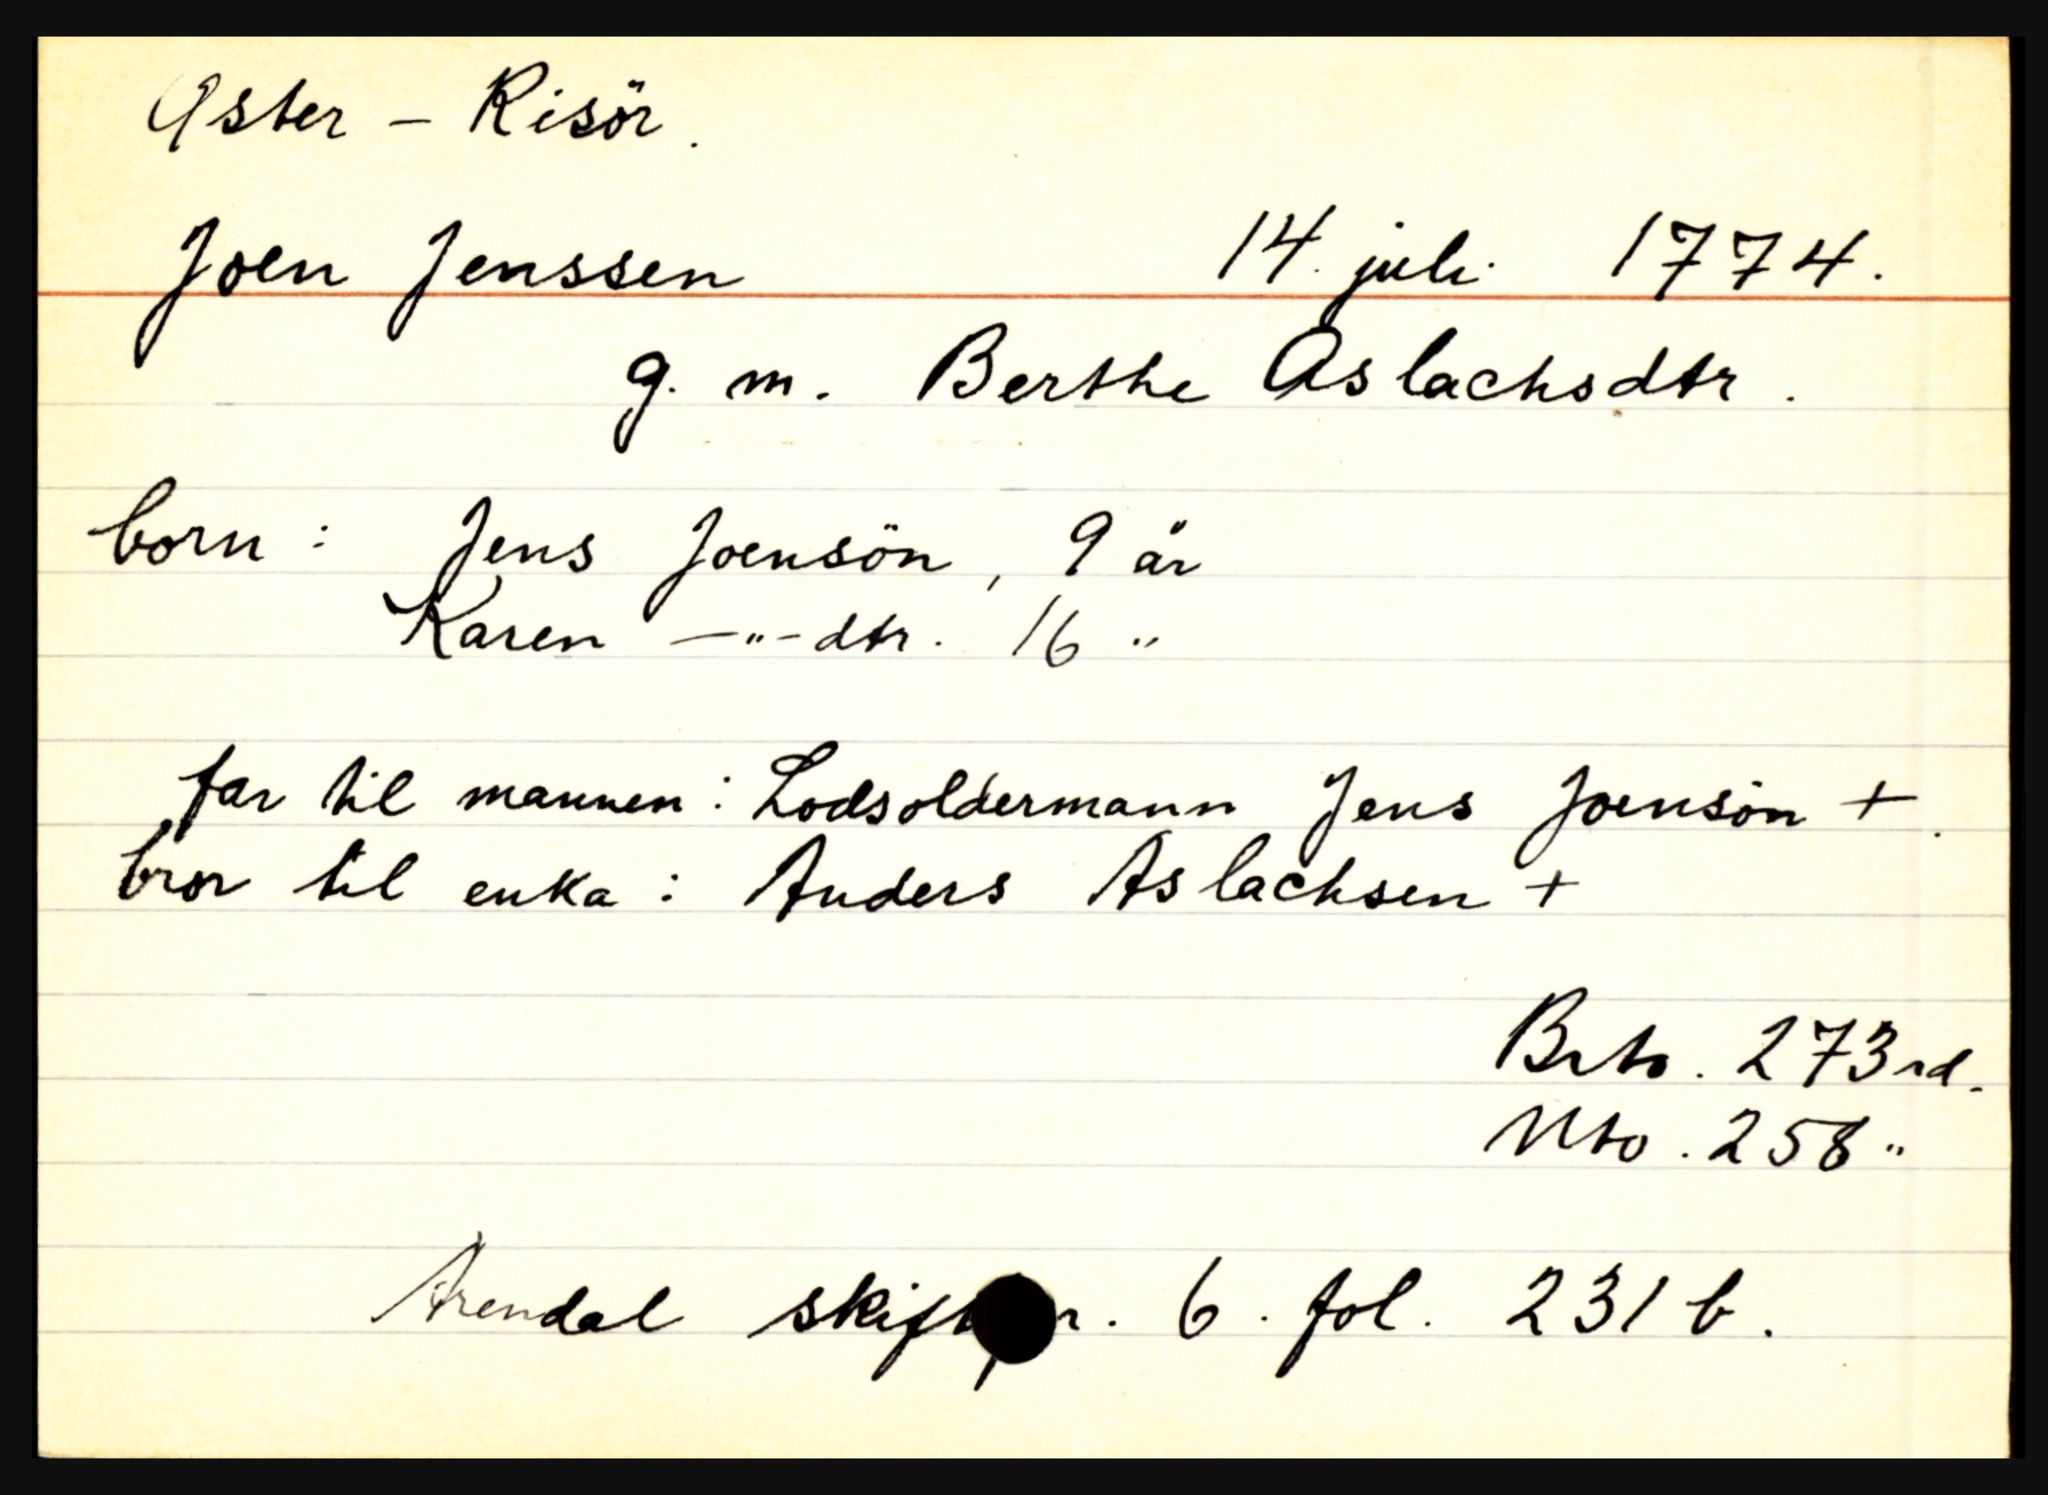 Øster - Risör.
Joen Jenssen 14. juli 1774.
g. m. Berthe Aslachsdtr.
born: Jens Joensön, 9 år
Karen —"- dtr. 16 "
far til mannen: Lodsoldermann Jens Joensön +.
bror til enka: Anders Aslachsen +
Brto. 273 rd.
Nto. 258 "
Arendal 6. fol. 231 b.